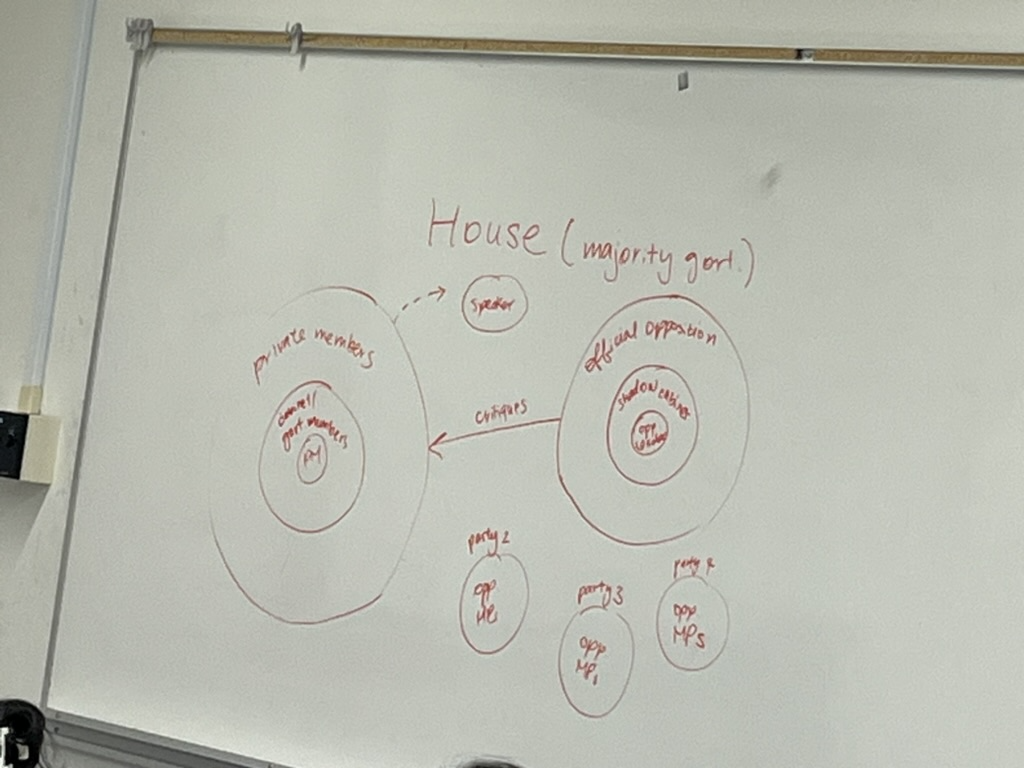 House (majority govt.)
Speaker
private members
cabinet/
govt. members
PM
critiques
official opposition
shadow cabinet
opp
leader
party 2
opp
MPs
party 3
opp
MPs
party 4
opp
MPs